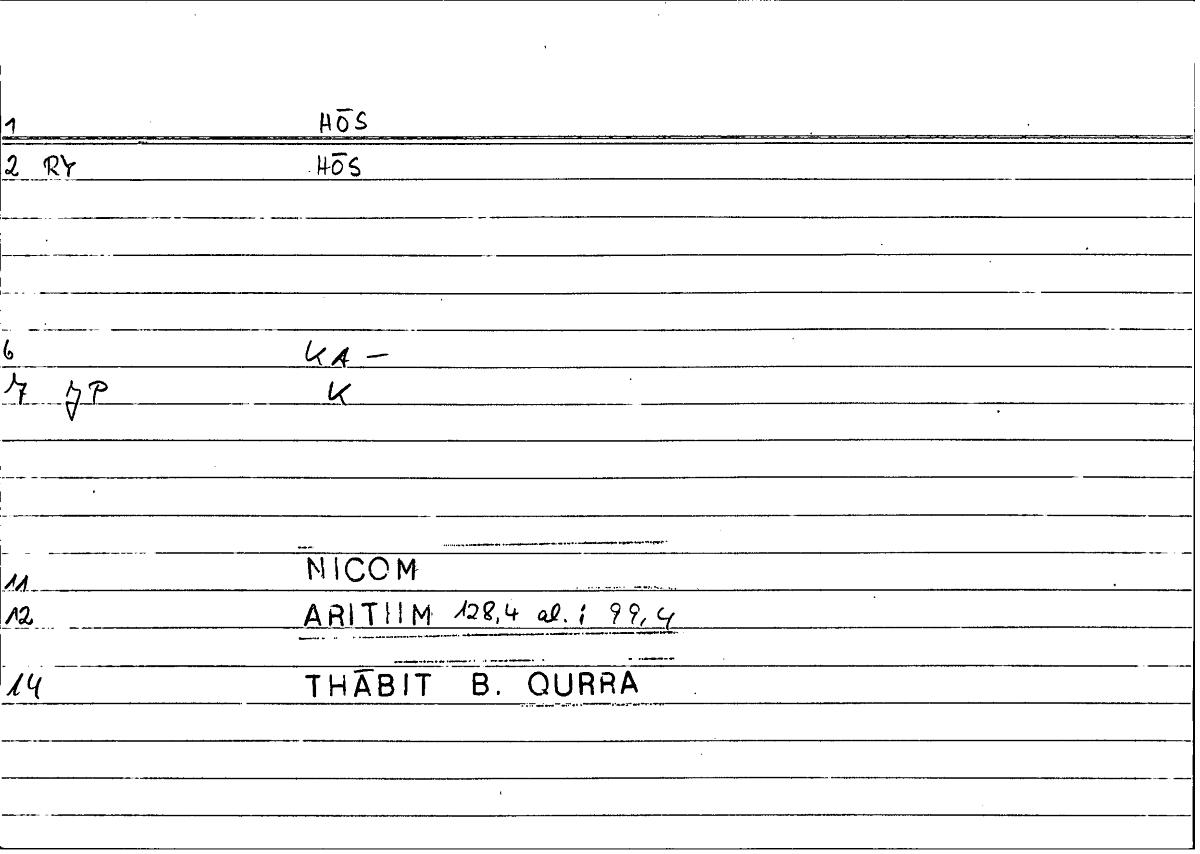 1 HŌS
2 RY HŌS
6 KA –
7 JP K
11 NICOM
12 ARITHM 128,4 al. ; 99,4
14 THĀBIT B. QURRA